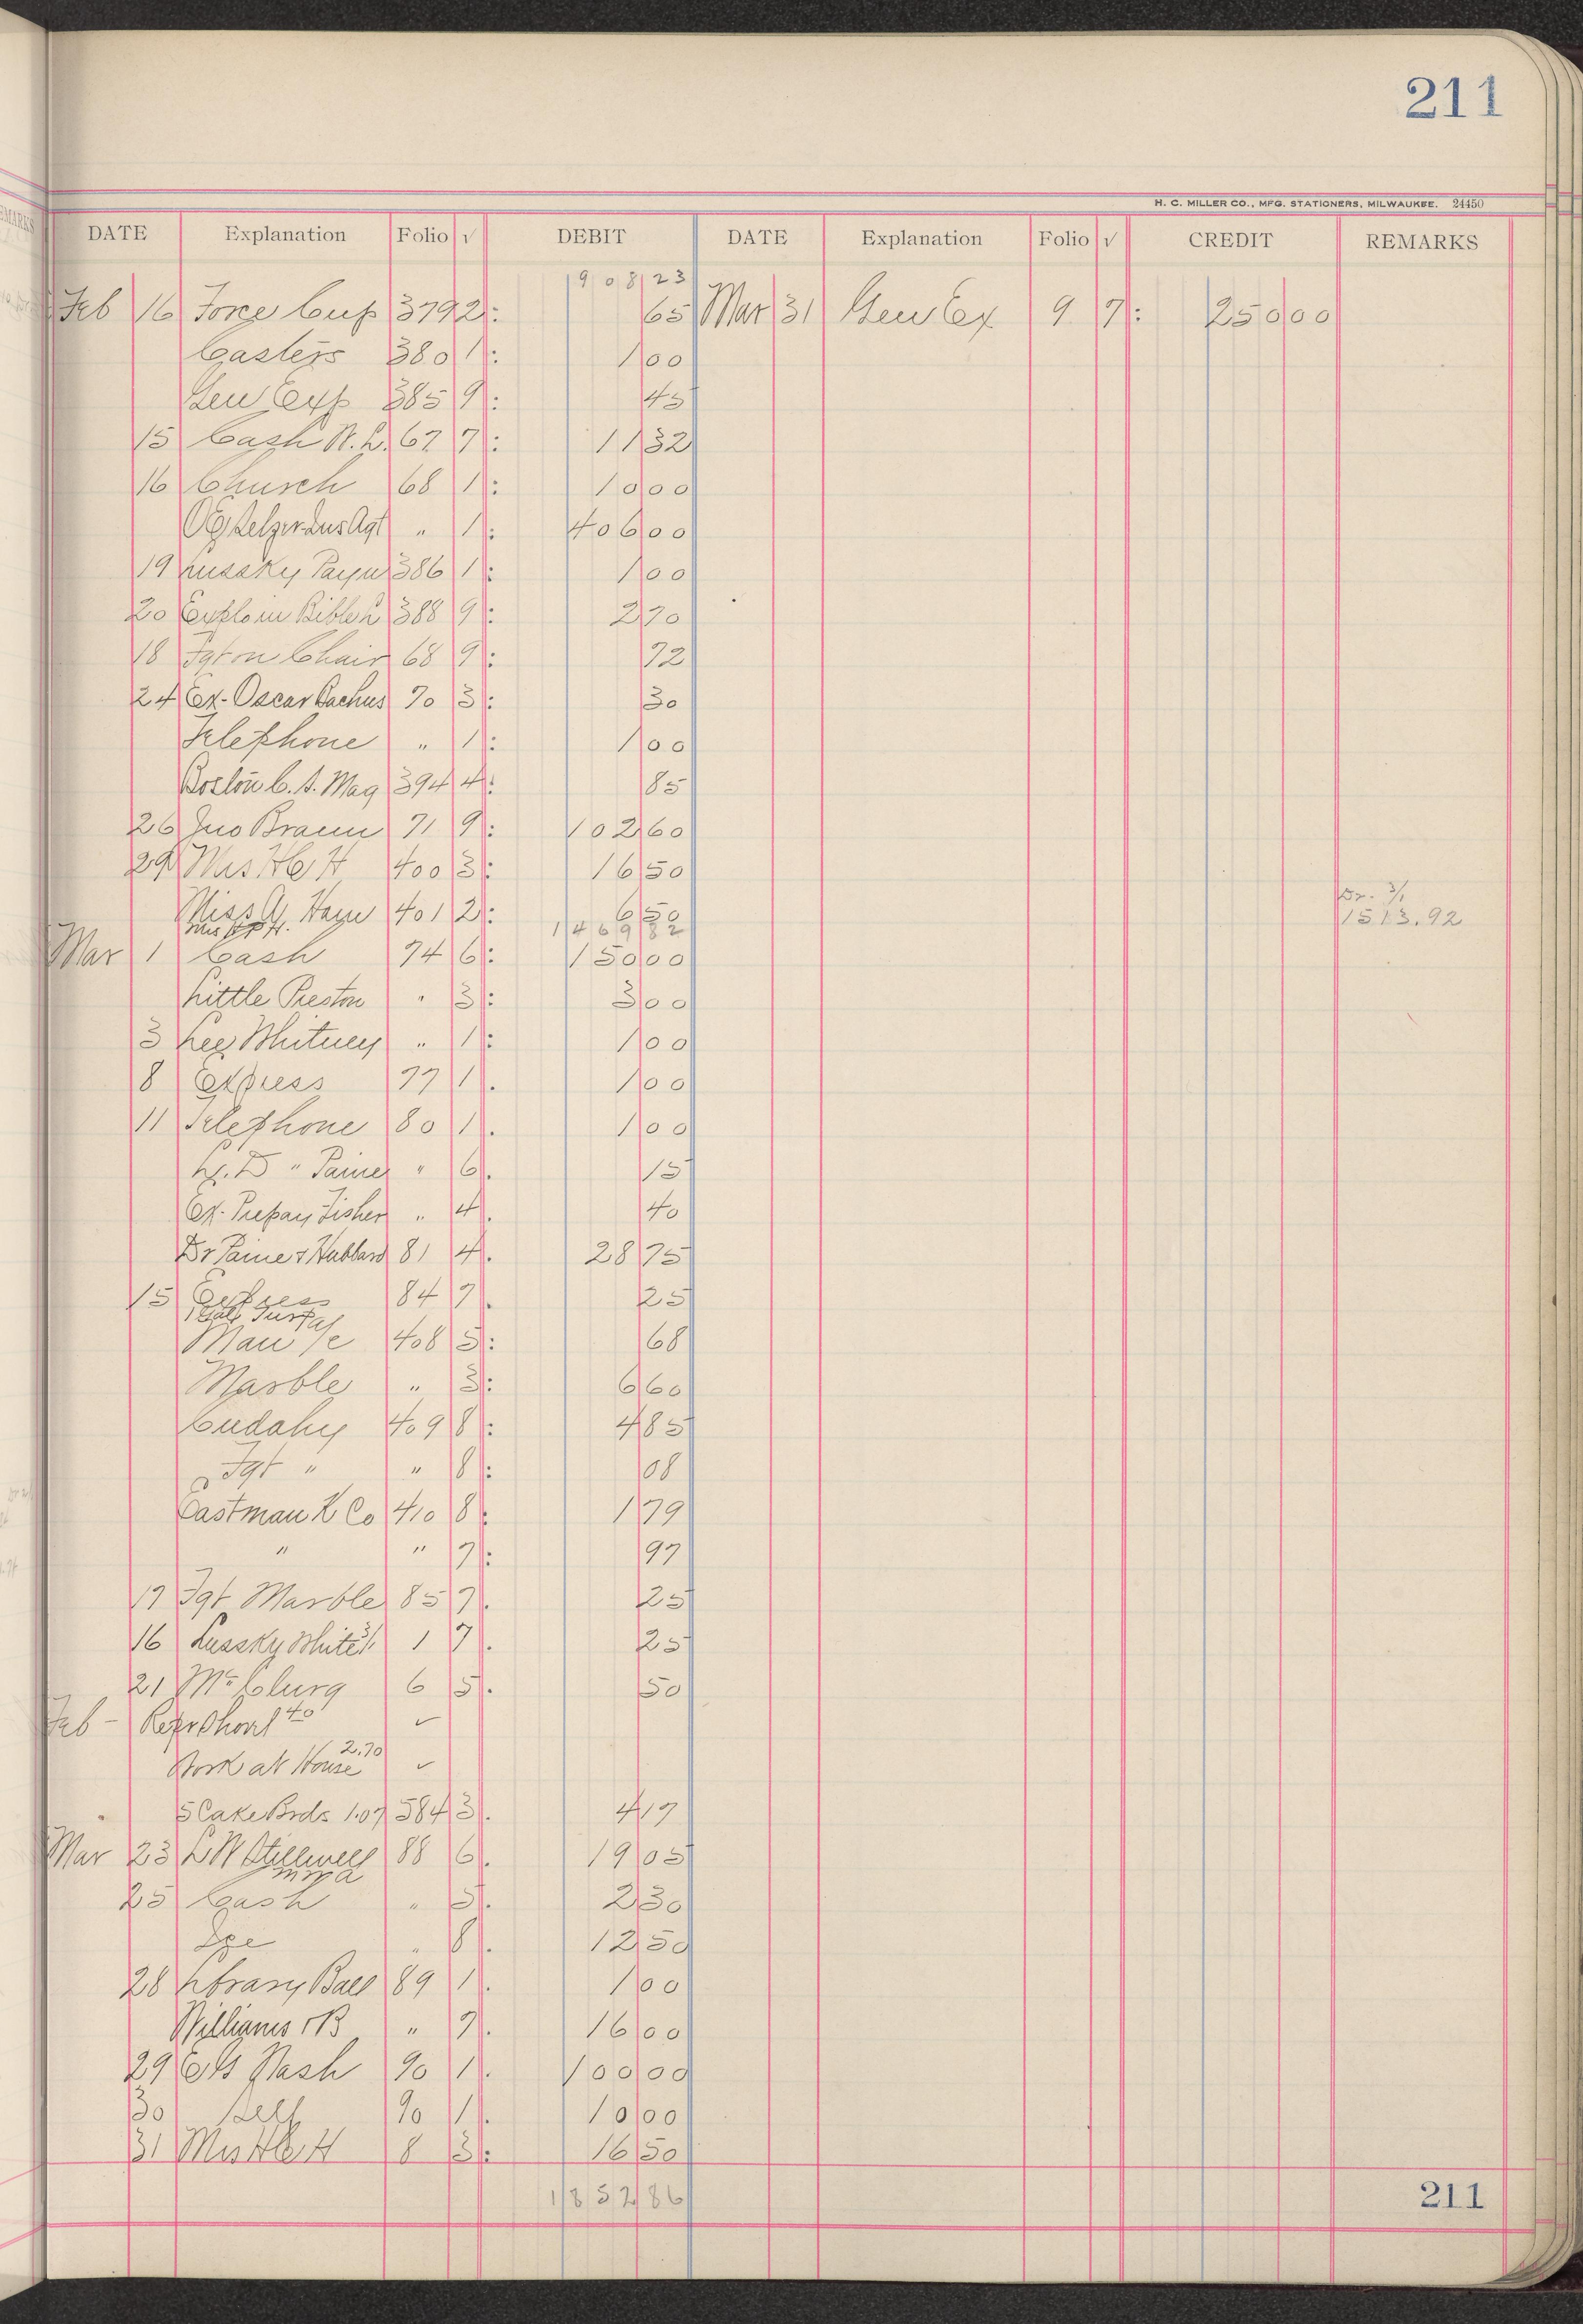 211
H. C. MILLER CO., MFG. STATIONERS, MILWAUKEE. 24450
DATE Explanation Folio √ DEBIT DATE Explanation Folio √ CREDIT REMARKS
908 23
Feb 16 Force Cup 379 2 65 Mar 31 Gen Ex 9 7 250 00
Casters 380 1 1 00
Gen Exp 385 9 45
15 Cash N.L. 67 7 11 32
16 Church 68 1 10 00
Ins Agt " 1 406 00
19 Lussky Payn 386 1 1 00
20 388 9 2 70
18 Fgt on Chair 68 9 72
24 Ex- Oscar Bachus 70 3 30
Telephone " 1 1 00
Boston C. S. Mag 394 4 85
26 Jno Braun 71 9 102 60
29 400 3 16 50
Miss A. Hayn 401 2 6 50
Dr. 3/1
1469 82
1513.92
Mar 1 Cash 74 6 150 00
Little Preston " 3 3 00
3 Lee Whitney " 1 1 00
8 Express 77 1 1 00
11 Telephone 80 1 1 00
" Paine " 6 15
Ex- Prepay Fisher " 4 40
Dr Paine & Hubbard 81 4 28 75
15 Express 84 7 25
Man /c 408 5 68
Marble " 3 6 60
Cudahy 409 8 4 85
Fgt " " 8 08
Eastman K Co 410 8 1 79
" " 7 97
17 Fgt Marble 85 7 25
16 Lussky White 1 7 25
21 McClurg 6 5 50
Feb - 40 ✓
Work at House 2.70 ✓
5 Cake Brds 1.07 584 3 4 17
Mar 23 L W Stillwell 88 6 19 05
25 Cash " 5 2 30
" 8 12 50
28 Library Ball 89 1 1 00
Williams & B " 7 16 00
29 Nash 90 1 100 00
30 Self 90 1 10 00
31 8 3 16 50
1852 86
211